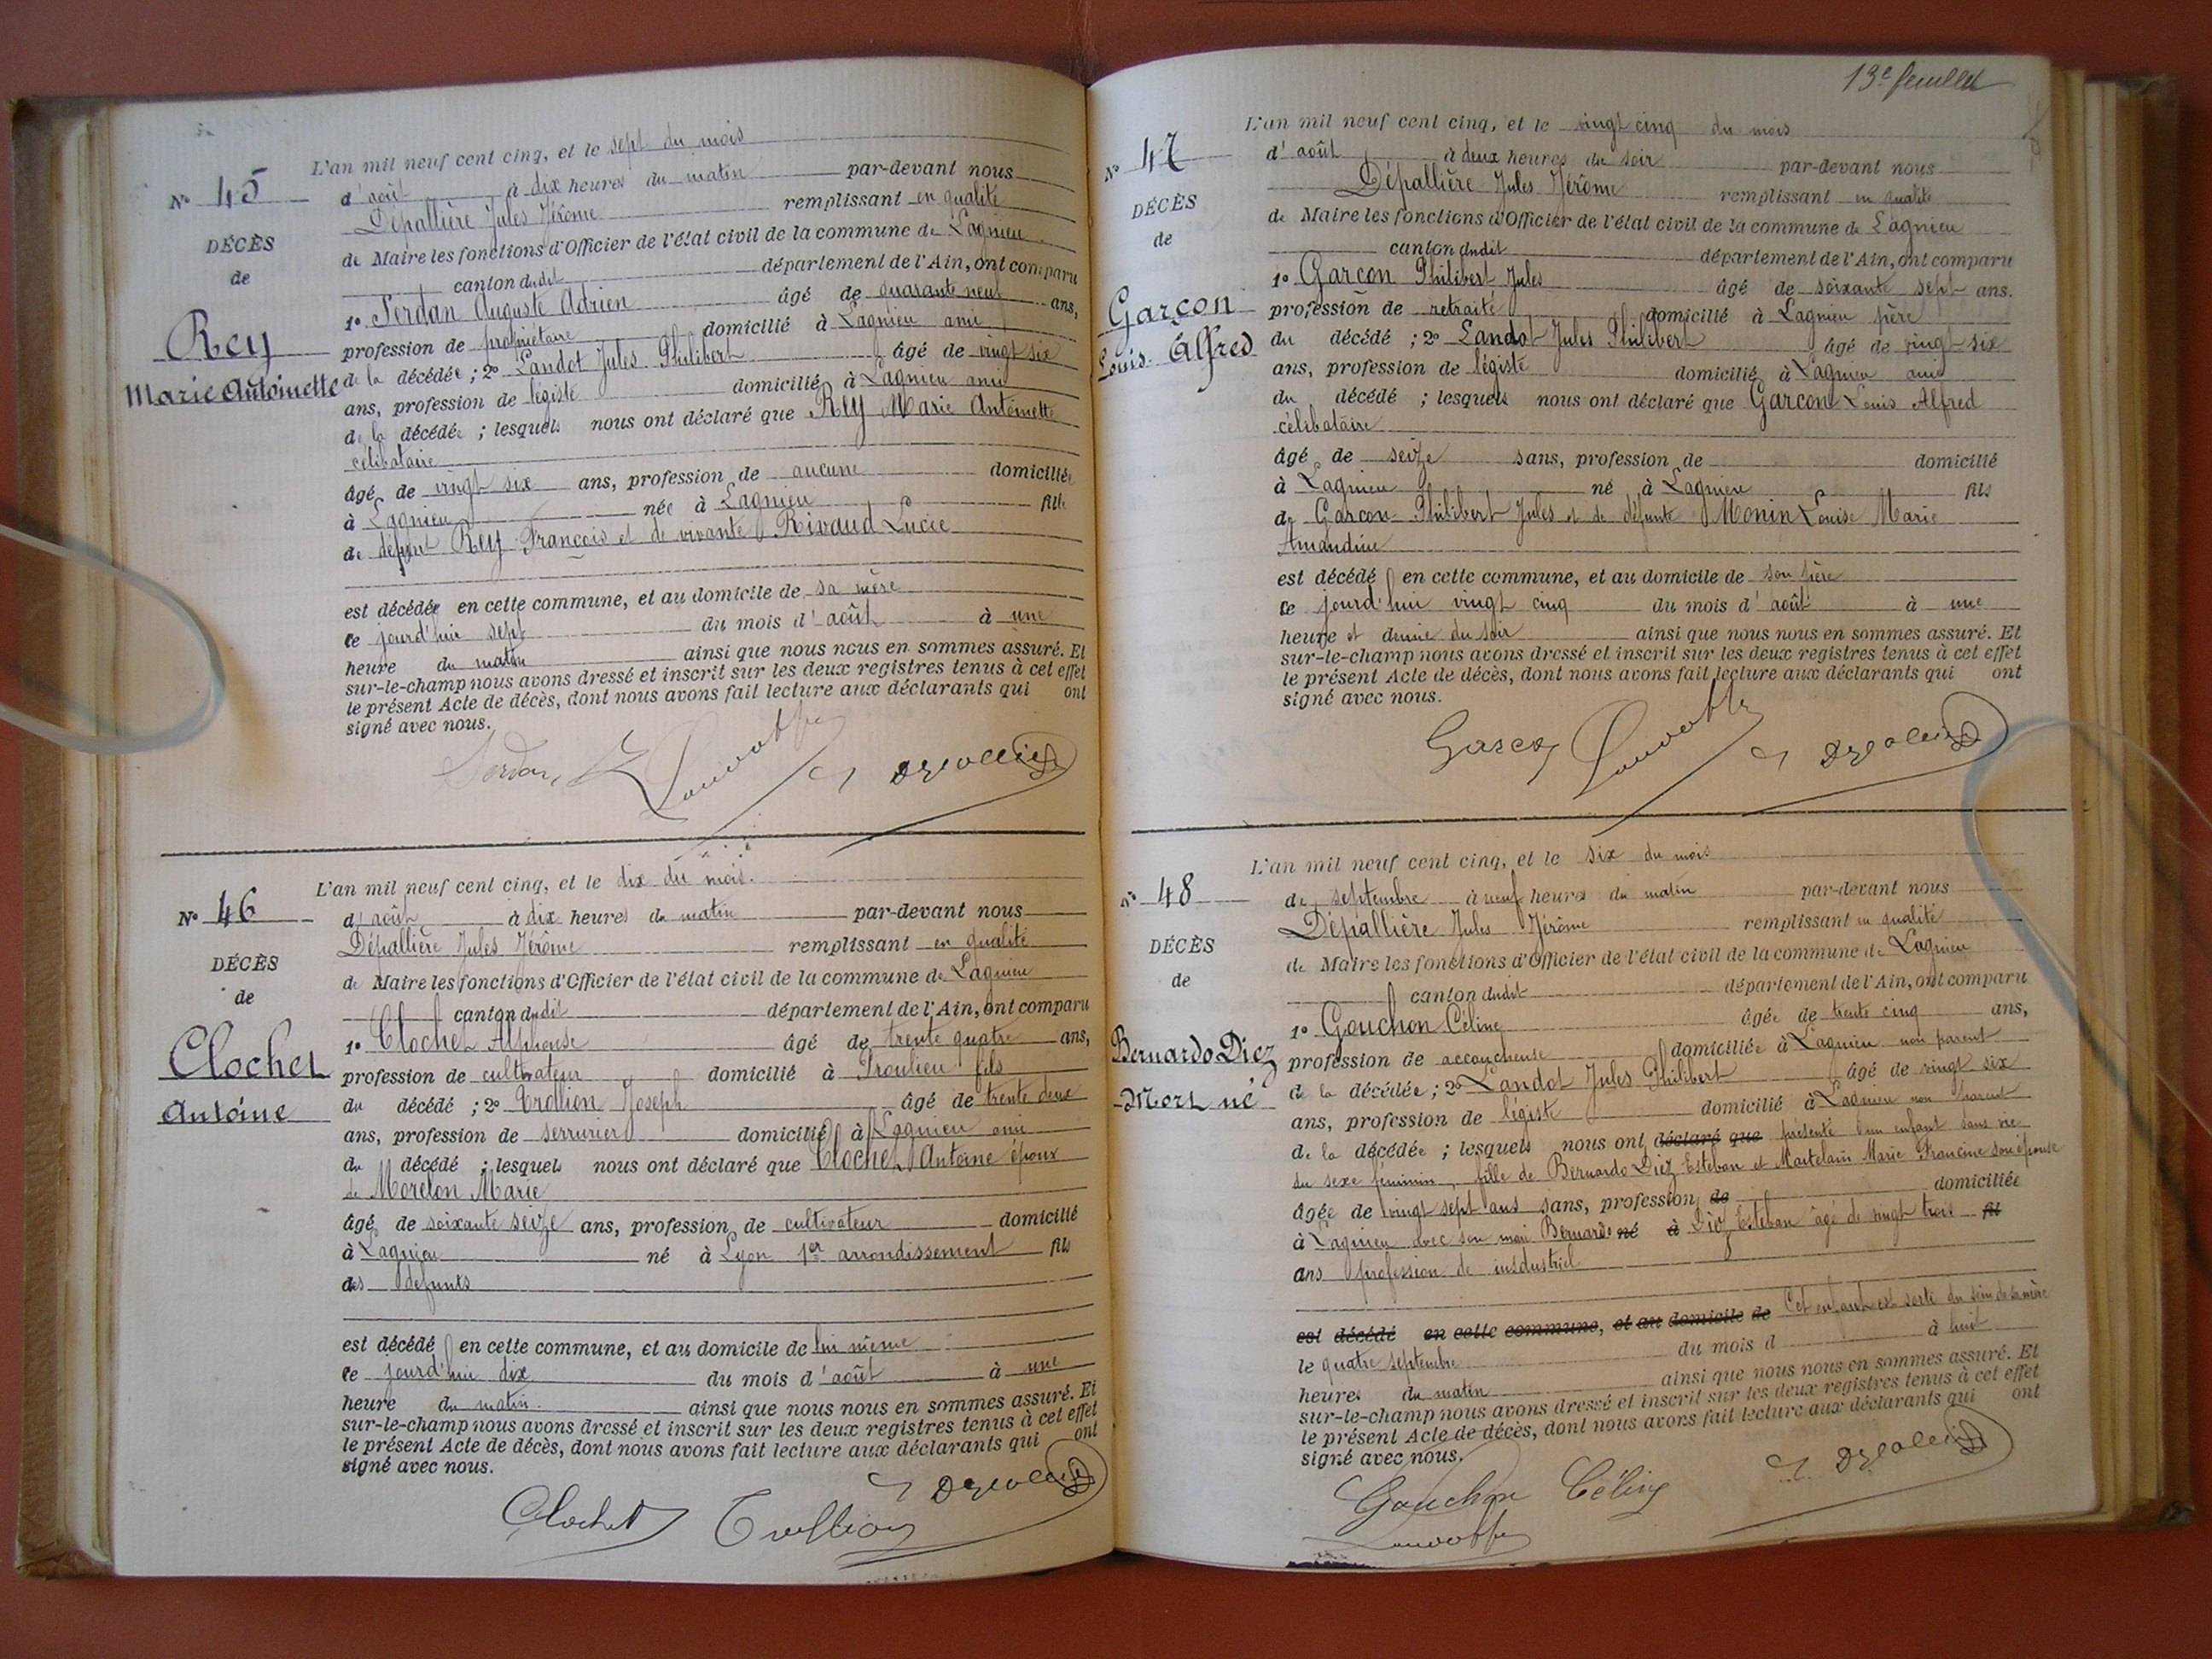 L'an mil neuf cent cinq, et le sept du mois
N° 45
d'août à dix heures du matin par-devant nous
Dépallière Jules Jérôme remplissant en qualité
DÉCÈS
de Maire les fonctions d'Officier de l'état civil de la commune de Lagnieu
de
canton dudit département de l'Ain, ont comparu
1° Serdan Auguste Adrien âgé de quarante neuf ans,
Rey
profession de propriétaire domicilié à Lagnieu ami
Marie Antoinette
de la décédée ; 2° Landot Jules Philibert âgé de vingt six
ans, profession de légiste domicilié à Lagnieu ami
de la décédée ; lesquels nous ont déclaré que Rey Marie Antoinette
célibataire
âgé de vingt six ans, profession de aucune domiciliée
à Lagnieu née à Lagnieu fille
de défunt Rey François et de vivante Rivaud Lucie
est décédée en cette commune, et au domicile de sa mère
ce jourd'hui sept du mois d'août à une
heure du matin ainsi que nous nous en sommes assuré. Et
sur-le-champ nous avons dressé et inscrit sur les deux registres tenus à cet effet
le présent Acte de décès, dont nous avons fait lecture aux déclarants qui ont
signé avec nous.
L'an mil neuf cent cinq, et le dix du mois
N° 46
d'août à dix heures du matin par-devant nous
Dépallière Jules Jérôme remplissant en qualité
DÉCÈS
de Maire les fonctions d'Officier de l'état civil de la commune de Lagnieu
de
canton dudit département de l'Ain, ont comparu
1° Clochet Alphonse âgé de trente quatre ans,
Clochet
profession de cultivateur domicilié à Proulieu fils
Antoine
du décédé ; 2° Trollion Joseph âgé de trente deux
ans, profession de serrurier domicilié à Lagnieu ami
du décédé ; lesquels nous ont déclaré que Clochet Antoine époux
de Morelon Marie
âgé de soixante seize ans, profession de cultivateur domicilié
à Lagnieu né à Lyon 1er arrondissement fils
des défunts
est décédé en cette commune, et au domicile de lui même
ce jourd'hui dix du mois d'août à une
heure du matin ainsi que nous nous en sommes assuré. Et
sur-le-champ nous avons dressé et inscrit sur les deux registres tenus à cet effet
le présent Acte de décès, dont nous avons fait lecture aux déclarants qui ont
signé avec nous.
Clochet Trollion
13e feuillet
L'an mil neuf cent cinq, et le vingt cinq du mois
N° 47
d'août à deux heures du soir par-devant nous
Dépallière Jules Jérôme remplissant en qualité
DÉCÈS
de Maire les fonctions d'Officier de l'état civil de la commune de Lagnieu
de
canton dudit département de l'Ain, ont comparu
1° Garçon Philibert Jules âgé de soixante sept ans.
Garçon
profession de retraité domicilié à Lagnieu père
Louis Alfred
du décédé ; 2° Landot Jules Philibert âgé de vingt six
ans, profession de légiste domicilié à Lagnieu ami
du décédé ; lesquels nous ont déclaré que Garçon Louis Alfred
célibataire
âgé de seize sans, profession de domicilié
à Lagnieu né à Lagnieu fils
de Garçon Philibert Jules et de défunte Monin Louise Marie
Amandine
est décédé en cette commune, et au domicile de son père
ce jourd'hui vingt cinq du mois d'août à une
heure et demie du soir ainsi que nous nous en sommes assuré. Et
sur-le-champ nous avons dressé et inscrit sur les deux registres tenus à cet effet
le présent Acte de décès, dont nous avons fait lecture aux déclarants qui ont
signé avec nous.
L'an mil neuf cent cinq, et le six du mois
N° 48
de septembre à neuf heures du matin par-devant nous
Dépallière Jules Jérôme remplissant en qualité
DÉCÈS
de Maire les fonctions d'Officier de l'état civil de la commune de Lagnieu
de
canton dudit département de l'Ain, ont comparu
1° Gouchon Céline âgée de trente cinq ans,
Bernardo Diez
profession de accoucheuse domiciliée à Lagnieu non parent
Mort né
de la décédée ; 2° Landot Jules Philibert âgé de vingt six
ans, profession de légiste domicilié à Lagnieu non parent
de la décédée ; lesquels nous ont déclaré que présenté un enfant sans vie
du sexe féminin, fille de Bernardo Diez Esteban et Martelain Marie Francine son épouse
âgée de vingt sept ans sans, profession de domiciliée
à Lagnieu avec son mari Bernardo né à Diez Esteban âgé de vingt trois fil
ans profession de insdustriel
est décédé en cette commune, et au domicile de Cet enfant est sorti du sein de sa mère
le quatre septembre du mois d à huit
heures du matin ainsi que nous nous en sommes assuré. Et
sur-le-champ nous avons dressé et inscrit sur les deux registres tenus à cet effet
le présent Acte de décès, dont nous avons fait lecture aux déclarants qui ont
signé avec nous.
Gouchon Céline